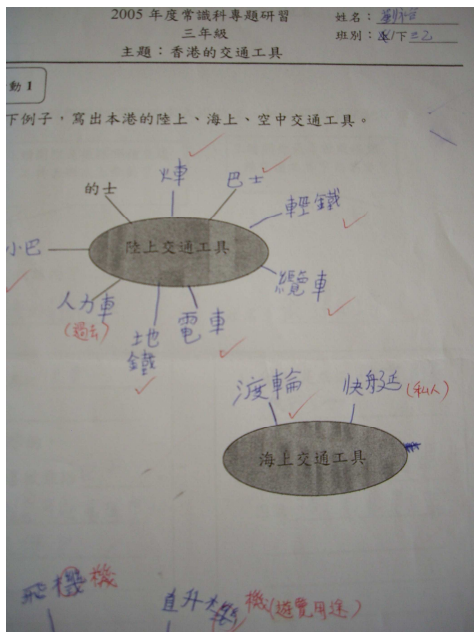 2005 年度常識科專題研習
姓名:
三年級
班別: 下
主題:香港的交通工具
動 1
下例子,寫出本港的陸上、海上、空中交通工具。
的士
火車
巴士
輕鐵
小巴
陸上交通工具
纜車
人力車
(過去)
地
鐵
電車
渡輪
快艇
(私人)
海上交通工具
飛機
機
直升
機